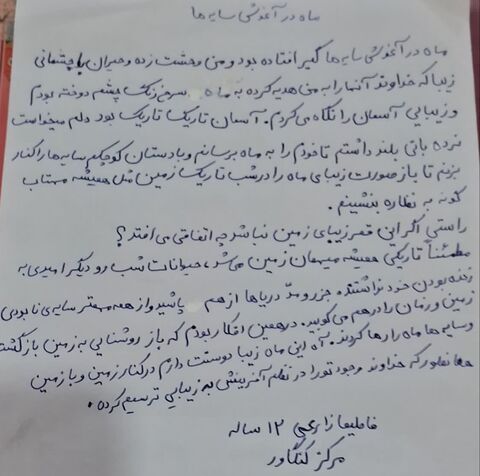 ماه در آغوش سایه ها
ماه در آغوش سایه ها گیر افتاده بود و من وحشت زده و حیران با چشمانی
زیبا که خداوند آنها را به من هدیه کرده به ماه سرخ رنگ چشم دوخته بودم
و زیبایی آسمان را نگاه می کردم. آسمان تاریک تاریک بود دلم میخواست
نرده بانی بلند داشتم تا خودم را به ماه برسانم و با دستان کوچکم سایه ها را کنار
بزنم تا باز صورت زیبای ماه را در شب تاریک زمین مثل همیشه مهتاب
گونه به نظاره بنشینم.
راستی اگر این قمر زیبای زمین نباشد چه اتفاقی می افتد؟
مطمئناً تاریکی همیشه میهمان زمین می شد، حیوانات شب رو دیگر امیدی به
زنده بودن خود نداشتند. جزر و مدّ دریاها از هم پاشید و از همه مهمتر سایه ی نابودی
زمین و زمان را در هم می کوبید. در همین افکار بودم که باز روشنایی به زمین بازگشت
و سایه ها ماه را رها کردند. آه ای ماه زیبا دوستت دارم در کنار زمین و با زمین
همانطور که خداوند وجود تو را در نظم آفرینش به زیبایی ترسیم کرده.
۱۲ ساله
مرکز کنگاور